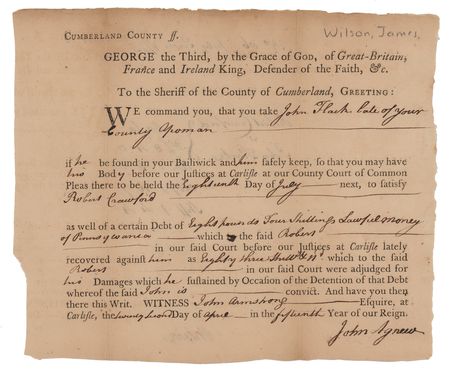 Wilson, James.
CUMBERLAND COUNTY ſſ.
GEORGE the Third, by the Grace of GOD, of Great-Britain,
France and Ireland King, Defender of the Faith, &c.
To the Sheriff of the County of Cumberland, GREETING:
WE command you, that you take John Flack late of your
County Yeoman
if he be found in your Bailiwick and him ſafely keep, ſo that you may have
his Body before our Juſtices at Carliſle at our County Court of Common
Pleas there to be held the Eighteenth Day of July next, to ſatisfy
Robert Crawford
as well of a certain Debt of Eight pounds Four Shillings Lawful money
of Pennsylvania which the ſaid Robert
in our ſaid Court before our Juſtices at Carliſle lately
recovered againſt him as Eighty three Shill &
which to the ſaid
Robert in our ſaid Court were adjudged for
his Damages which he ſuſtained by Occaſion of the Detention of that Debt
whereof the ſaid John is convict. And have you then
there this Writ. WITNESS John Armstrong Eſquire, at
Carliſle, the twenty second Day of April in the fifteenth Year of our Reign.
John Agnew